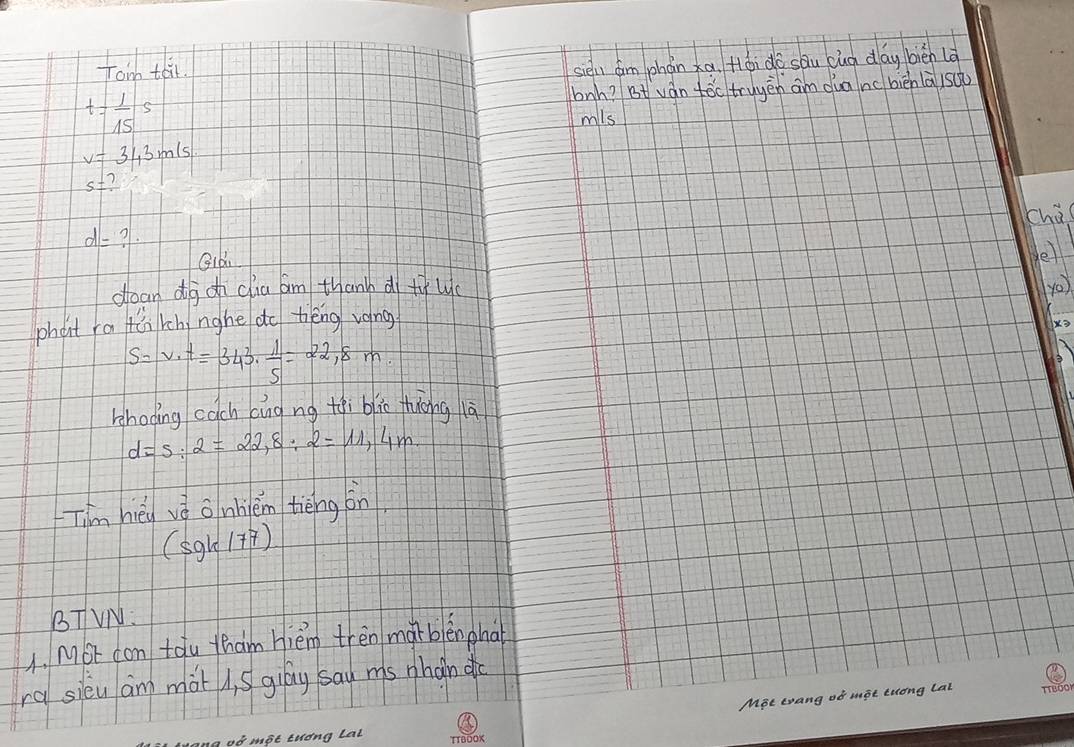 Tóm tắt.
t = 1/15 s
v = 343 m/s.
s = ?
d = ?.
Giải
đoạn đg đi của âm thanh đi từ lúc
phát ra tới khi nghe đc tiếng vang
S = v.t = 343. 1/5 = 22,8 m.
khoảng cách của ng tới bức tường là
d = s : 2 = 22,8 : 2 = 11,4 m.
- Tìm hiểu về ô nhiễm tiếng ồn.
(sgk/77)
BTVN:
1. Một con tàu thám hiểm trên mặt biển phát
ra siêu âm mất 1,5 giây sau ms nhận đc
Một trang vở một tương lai
TTBOOK
siêu âm phản xạ. Hỏi độ sâu của đáy biển là
bnh? Bt vận tốc truyền âm của nc biển là 1500
m/s
Một trang vở một tương lai
TTBOOK